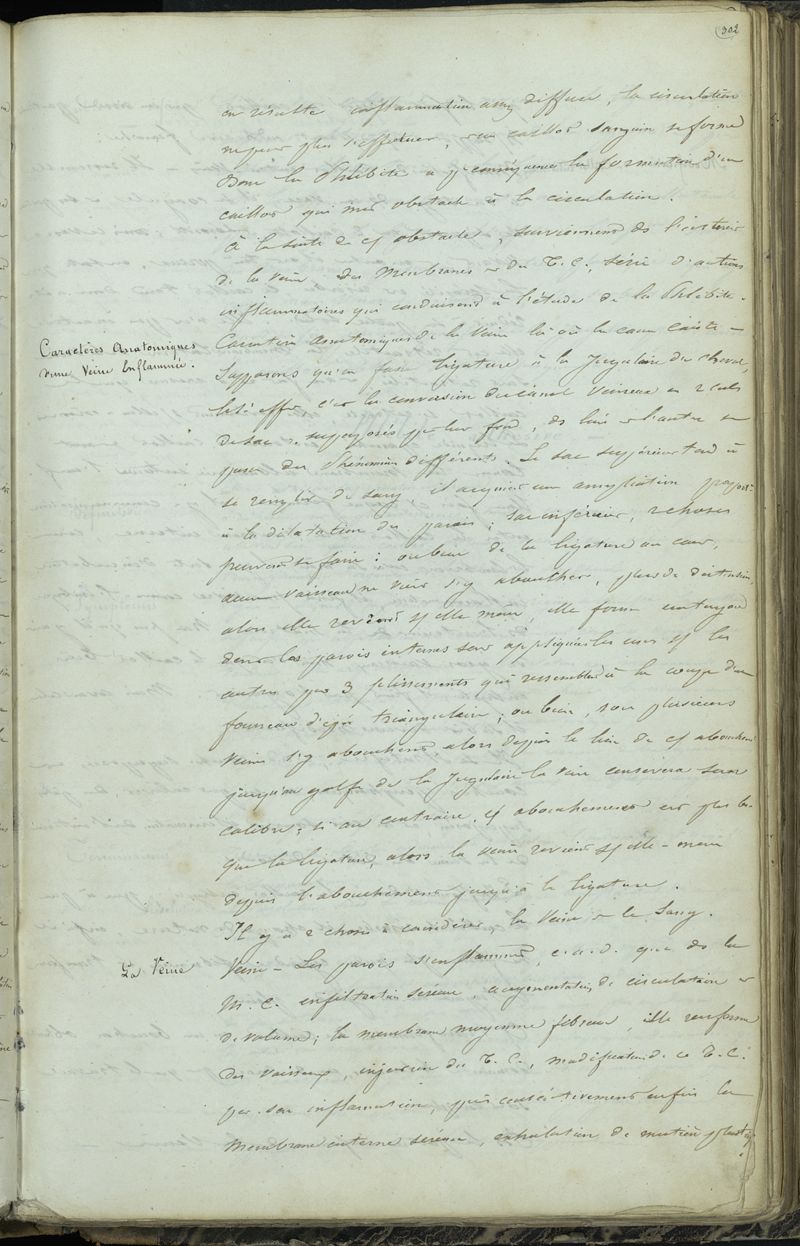 302
en résulte inflammation assez diffuse, la circulation
ne peut plus s'effectuer, un caillot sanguin se forme
Donc la Phlébite a pr conséquence la formation d'un
caillot qui met obstacle à la circulation.
à la suite de cet obstacle, surviennent ds l'intérieur
de la veine, des Membranes et du T. C., série d'actions
inflammatoires qui conduisent à l'étude de la Phlébite.
Caractères Anatomiques
d'une Veine Enflammée.
Caractères Anatomiques de la Veine là où la cause existe —
Supposons qu'on fasse ligature à la Jugulaire du cheval,
les effets, c'est la conversion du canal Veineux en 2 culs
de sac superposés pr leur fond, ds l'un et l'autre se
passe des Phénomènes différents. Le sac supérieur tend à
se remplir de sang, il acquiert une ampliation proport.
à la dilatation des parois; sac inférieur, 2 choses
peuvent se faire: ou bien de la ligature au cœur,
aucun vaisseau ne vient s'y aboucher, plus de distension,
alors elle revient sr elle même, elle forme un tuyau
dont les parois internes sont appliquées les unes sr les
autres par 3 plissements qui ressemblent à la coupe d'un
fourreau d'épée triangulaire; ou bien, si plusieurs
Veines s'y abouchent alors depuis le lieu de cet abouchemt
jusqu'au golfe de la Jugulaire la veine conservera son
calibre; si au contraire, cet abouchement est plus bas
que la ligature, alors la veine revient sr elle-même
depuis l'abouchement jusqu'à la ligature.
Il y a 2 choses à considérer la Veine et le Sang.
La Veine
Veine — Les parois s'enflamment, c.a.d. que ds la
M. C. infiltration séreuse, augmentation de circulation et
de volume; la membrane moyenne fibreuse, elle renferme
des vaisseaux, injection du T. C., modification de ce T. C.
par son inflammation, enfin la
Membrane interne séreuse, exhalation de matière plastiq.